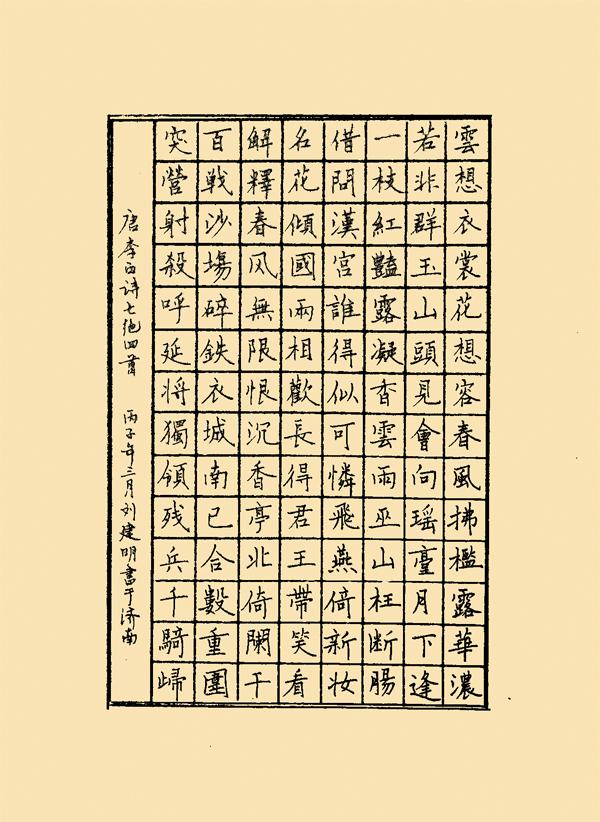 雲想衣裳花想容春風拂檻露華濃
若非群玉山頭見會向瑶臺月下逢
一枝紅豔露凝香雲雨巫山枉断腸
借問漢宮誰得似可憐飛燕倚新妆
名花傾國兩相歡長得君王帶笑看
解釋春风無限恨沉香亭北倚闌干
百戦沙場碎鉄衣城南已合數重圍
突營射殺呼延将獨領残兵千騎歸
唐李白诗七绝四首 丙子年三月刘建明書于济南